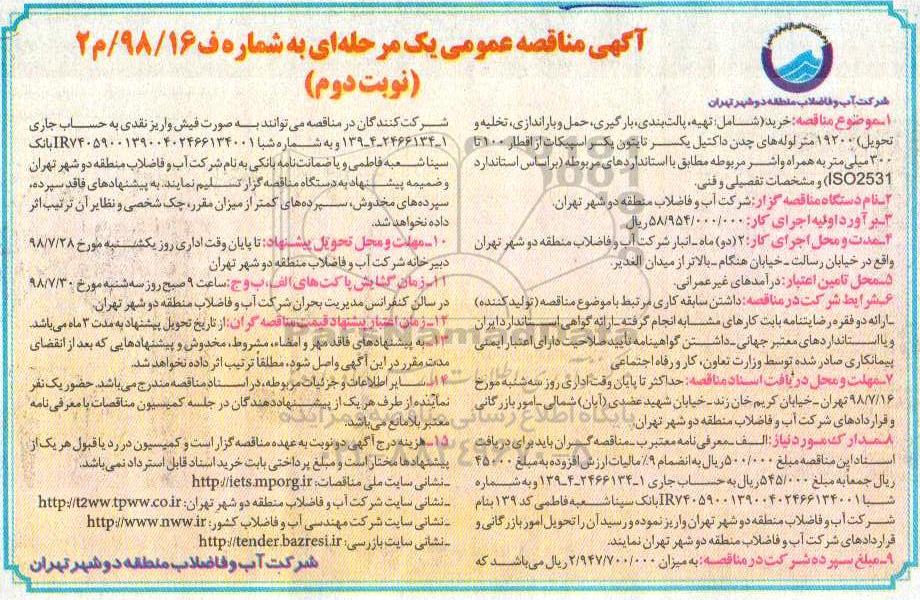 آگهی مناقصه عمومی یک مرحله‌ای به شماره ف ۹۸/۱۶/م۲
(نوبت دوم)
شرکت آب و فاضلاب منطقه دو شهر تهران
۱ـ موضوع مناقصه: خرید (شامل: تهیه، پالت‌بندی، بارگیری، حمل و باراندازی، تخلیه و
تحویل) ۱۹۲۰۰ متر لوله‌های چدن داکتیل یکسر تایتون یکسر اسپیگات از اقطار ۱۰۰ تا
۳۰۰ میلی‌متر به همراه واشر مربوطه مطابق با استانداردهای مربوطه (براساس استاندارد
ISO2531) و مشخصات تفصیلی و فنی.
۲ـ نام دستگاه مناقصه گزار: شرکت آب و فاضلاب منطقه دو شهر تهران.
۳ـ برآورد اولیه اجرای کار: ۵۸/۹۵۴/۰۰۰/۰۰۰ ریال
۴ـ مدت و محل اجرای کار: ۲ (دو) ماه ـ انبار شرکت آب و فاضلاب منطقه دو شهر تهران
واقع در خیابان رسالت ـ خیابان هنگام ـ بالاتر از میدان الغدیر.
۵ـ محل تامین اعتبار: درآمدهای غیرعمرانی.
۶ـ شرایط شرکت در مناقصه: داشتن سابقه کاری مرتبط با موضوع مناقصه (تولیدکننده)
ـ ارائه دو فقره رضایتنامه بابت کارهای مشابه انجام گرفته ـ ارائه گواهی استاندارد ایران
و یا استانداردهای معتبر جهانی ـ داشتن گواهینامه تأیید صلاحیت دارای اعتبار ایمنی
پیمانکاری صادر شده توسط وزارت تعاون، کار و رفاه اجتماعی
۷ـ مهلت و محل دریافت اسناد مناقصه: حداکثر تا پایان وقت اداری روز سه‌شنبه مورخ
۹۸/۷/۱۶ تهران ـ خیابان کریم خان زند ـ خیابان شهید عضدی (آبان) شمالی ـ امور بازرگانی
و قراردادهای شرکت آب و فاضلاب منطقه دو شهر تهران.
۸ـ مدارک مورد نیاز: الف ـ معرفی‌نامه معتبر ب ـ مناقصه گران باید برای دریافت
اسناد این مناقصه مبلغ ۵۰۰/۰۰۰ ریال به انضمام ۹٪ مالیات ارزش افزوده به مبلغ ۴۵/۰۰۰
ریال جمعا به مبلغ ۵۴۵/۰۰۰ ریال به حساب جاری ۱ـ۲۴۶۶۱۳۴ـ۴ـ۱۳۹ و به شماره
شبا IR۷۴۰۵۹۰۰۱۳۹۰۰۴۰۲۴۶۶۱۳۴۰۰۱ بانک سینا شعبه فاطمی کد ۱۳۹ بنام
شرکت آب و فاضلاب منطقه دو شهر تهران واریز نموده و رسید آن را تحویل امور بازرگانی و
قراردادهای شرکت آب و فاضلاب منطقه دو شهر تهران نمایند.
۹ـ مبلغ سپرده شرکت در مناقصه: به میزان ۲/۹۴۷/۷۰۰/۰۰۰ ریال می‌باشد که
شرکت‌کنندگان در مناقصه می‌توانند به صورت فیش واریز نقدی به حساب جاری
۱ـ۲۴۶۶۱۳۴ـ۴ـ۱۳۹ و به شماره شبا IR۷۴۰۵۹۰۰۱۳۹۰۰۴۰۲۴۶۶۱۳۴۰۰۱ بانک
سینا شعبه فاطمی و یا ضمانت‌نامه بانکی به نام شرکت آب و فاضلاب منطقه دو شهر تهران
و ضمیمه پیشنهاد به دستگاه مناقصه گزار تسلیم نمایند. به پیشنهادهای فاقد سپرده،
سپرده‌های مخدوش، سپرده‌های کمتر از میزان مقرر، چک شخصی و نظایر آن ترتیب اثر
داده نخواهد شد.
۱۰ـ مهلت و محل تحویل پیشنهاد: تا پایان وقت اداری روز یکشنبه مورخ ۹۸/۷/۲۸
دبیرخانه شرکت آب و فاضلاب منطقه دو شهر تهران
۱۱ـ زمان گشایش پاکت‌های الف، ب و ج: ساعت ۹ صبح روز سه‌شنبه مورخ ۹۸/۷/۳۰
در سالن کنفرانس مدیریت بحران شرکت آب و فاضلاب منطقه دو شهر تهران.
۱۲ـ زمان اعتبار پیشنهاد قیمت مناقصه گران: از تاریخ تحویل پیشنهاد به مدت ۳ ماه می‌باشد.
۱۳ـ به پیشنهادهای فاقد مهر و امضاء، مشروط، مخدوش و پیشنهادهایی که بعد از انقضای
مدت مقرر در این آگهی واصل شود، مطلقا ترتیب اثر داده نخواهد شد.
۱۴ـ سایر اطلاعات و جزئیات مربوطه، در اسناد مناقصه مندرج می‌باشد. حضور یک نفر
نماینده از طرف هر یک از پیشنهاددهندگان در جلسه کمیسیون مناقصات با معرفی‌نامه
معتبر بلامانع می‌باشد.
۱۵ـ هزینه درج آگهی دو نوبت به عهده مناقصه گزار است و کمیسیون در رد یا قبول هر یک از
پیشنهادها مختار است و مبلغ پرداختی بابت خرید اسناد قابل استرداد نمی‌باشد.
ـ نشانی سایت ملی مناقصات: http://iets.mporg.ir
ـ نشانی سایت شرکت آب و فاضلاب منطقه دو شهر تهران: http://t2ww.tpww.co.ir
ـ نشانی سایت شرکت مهندسی آب و فاضلاب کشور: http://www.nww.ir
ـ نشانی سایت بازرسی: http://tender.bazresi.ir
شرکت آب و فاضلاب منطقه دو شهر تهران
پایگاه اطلاع رسانی مناقصه و مزایده